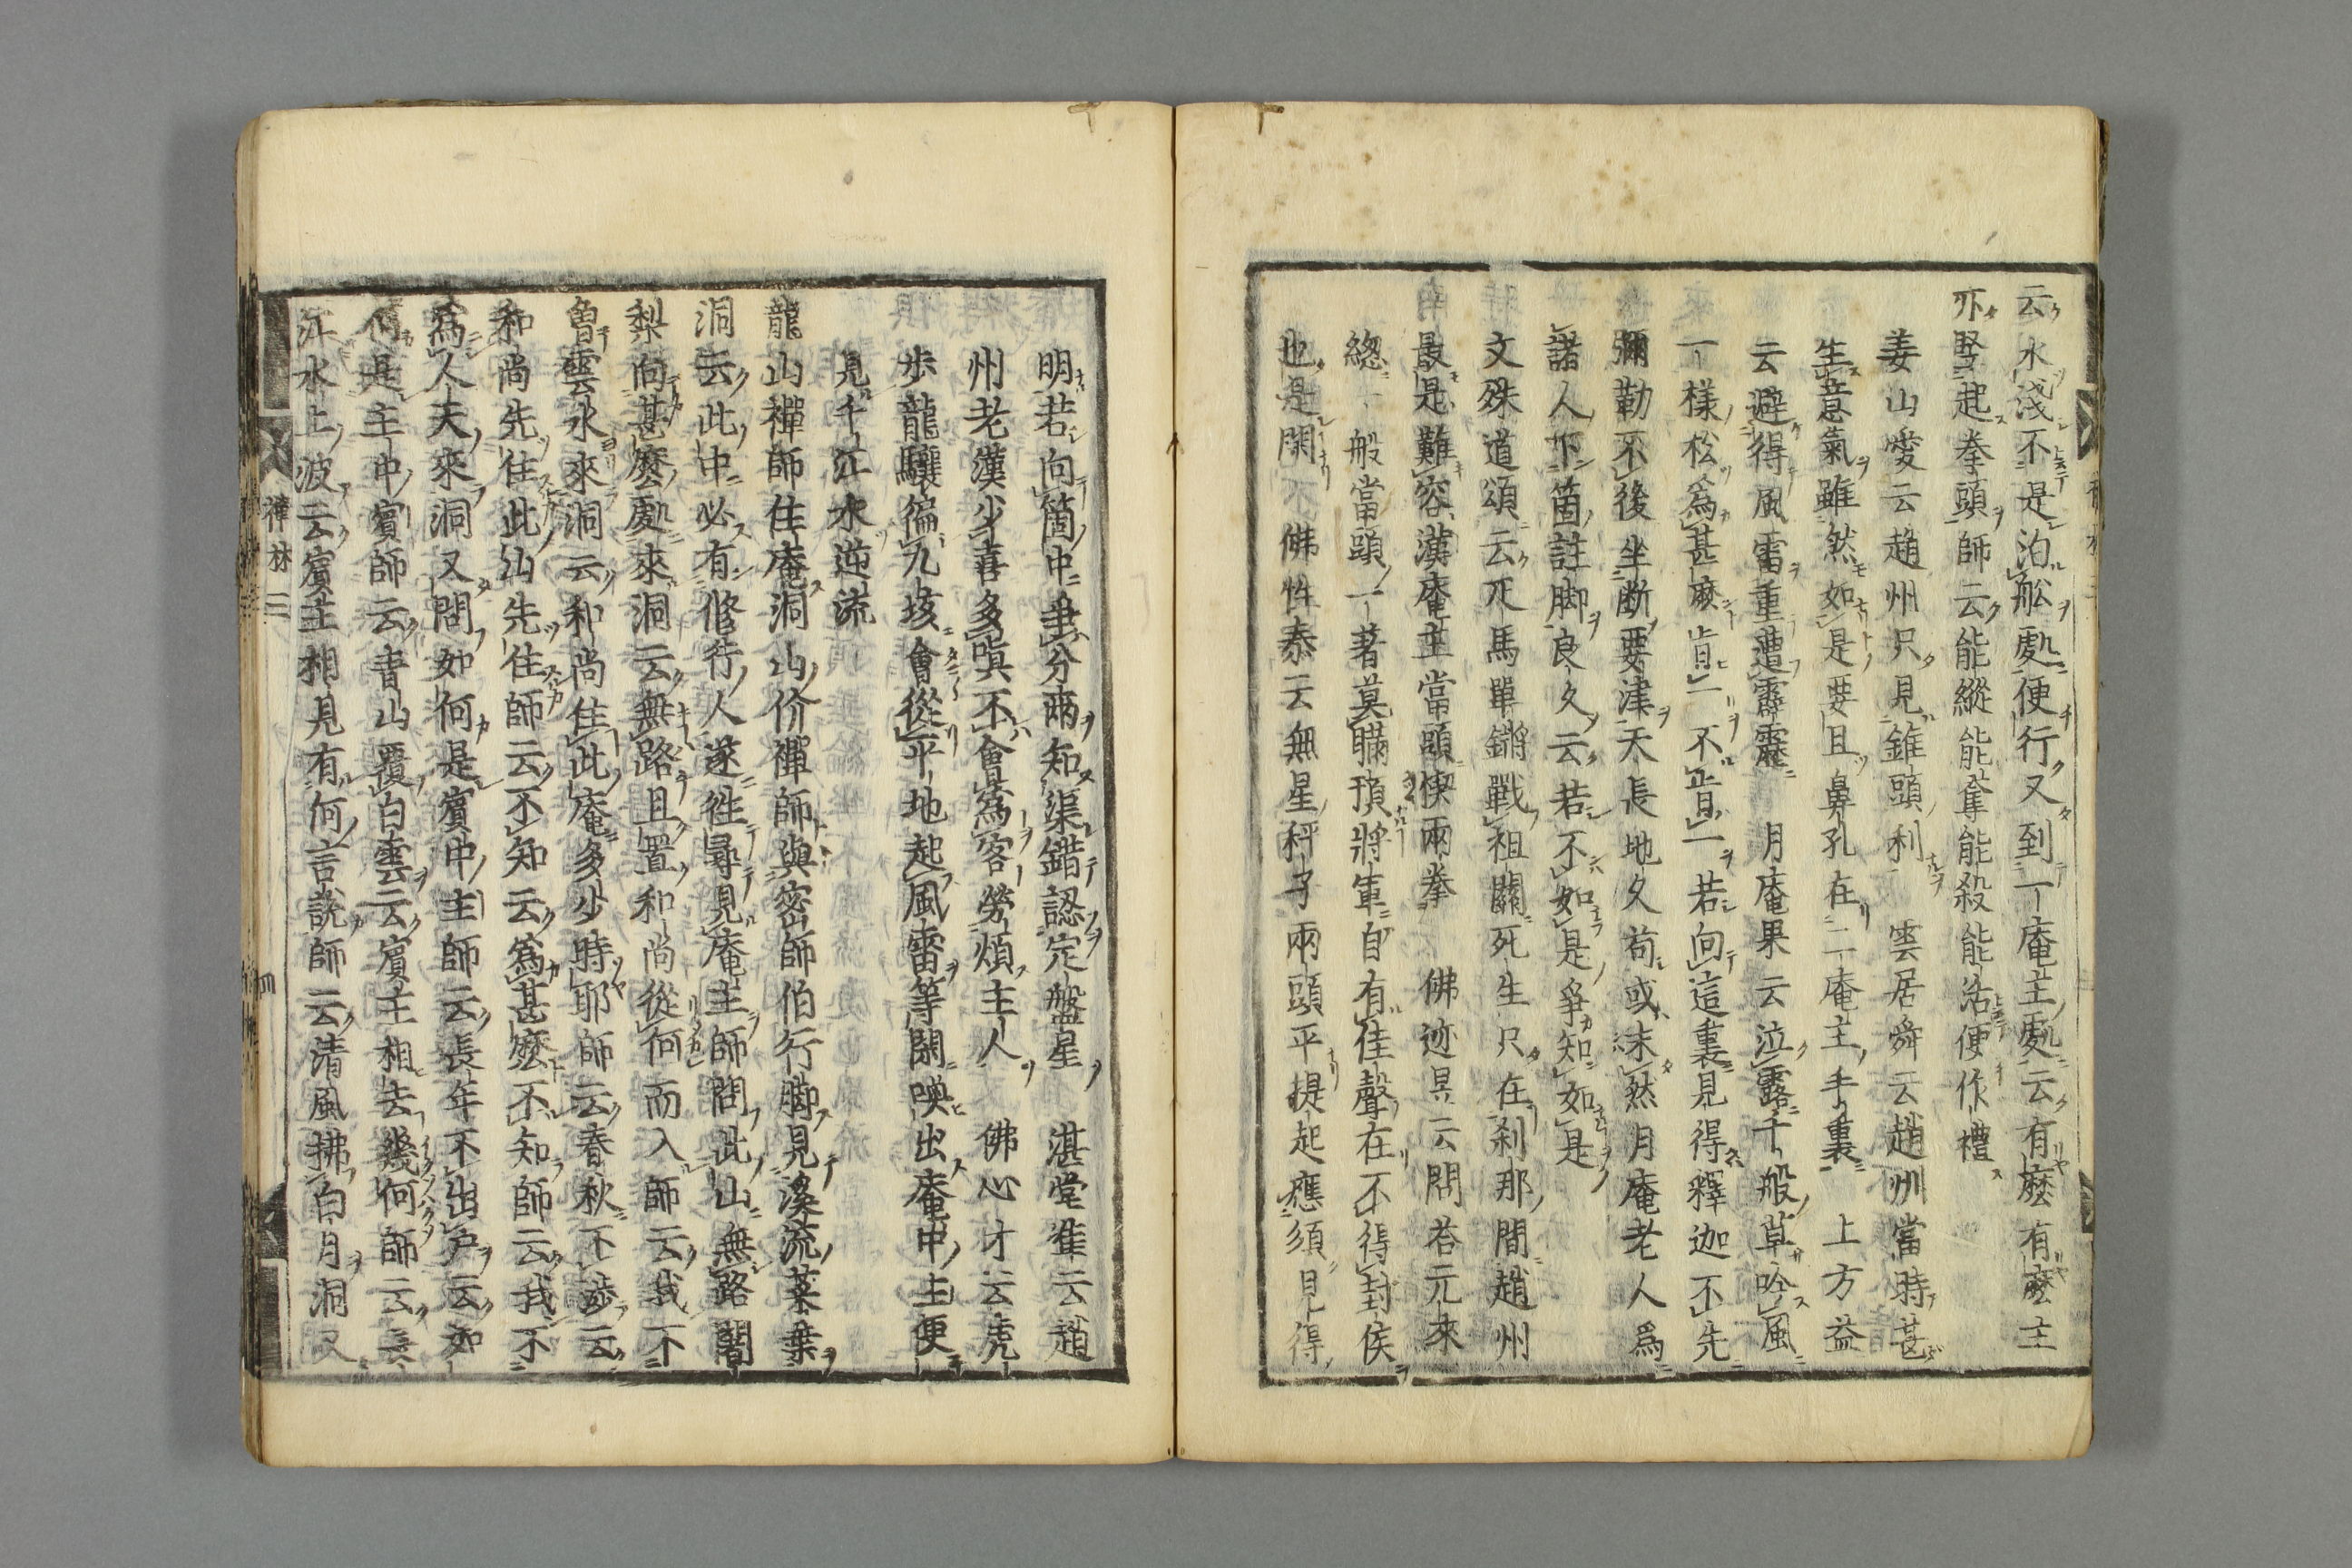 云水淺不是泊舩處便行又到一庵主處云有麽有麽主
亦竪起拳頭師云能縱能奪能殺能活便作禮
姜山愛云趙州只見錐頭利　雲居舜云趙州當時甚
生意氣雖然如是要且鼻孔在二庵主手裏　上方益
云避得風雷重遭霹靂　月庵果云泣露千般草吟風
一樣松爲甚麽肯一不肯一若向這裏見得釋迦不先
彌勒不後坐斷要津天長地久苟或未然月庵老人爲
諸人下箇註脚良久云若不如是爭知如是
文殊道頌云疋馬單鎗戰祖關死生只在刹那間趙州
最是難容漢庵主當頭楔兩拳　佛迹昱云問荅元來
總一般當頭一著莫瞞預將軍自有佳聲在不得封侯
也是閑　佛性泰云無星秤子兩頭平提起應須見得
明若向箇中乖分兩知渠錯認定盤星　湛堂準云趙
州老漢少喜多嗔不會爲客勞煩主人　佛心才云虎
步龍驤徧九垓會從平地起風雷等閑喚出庵中主便
見千江水逆流
龍山禪師住庵洞山价禪師與密師伯行脚見溪流菜葉
洞云此中必有修行人遂徃尋見庵主師問此山無路闍
梨向甚麽處來洞云無路且置和尚從何而入師云我不
曾雲水來洞云和尚住此庵多少時耶師云春秋不渉云
和尚先住此山先住師云不知云爲甚麽不知師云我不
爲人天來洞又問如何是賓中主師云長年不出戸云如
何是主中賓師云青山覆白雲云賓主相去幾何師云長
江水上波云賓主相見有何言説師云清風拂白月洞又
禪林 三
四